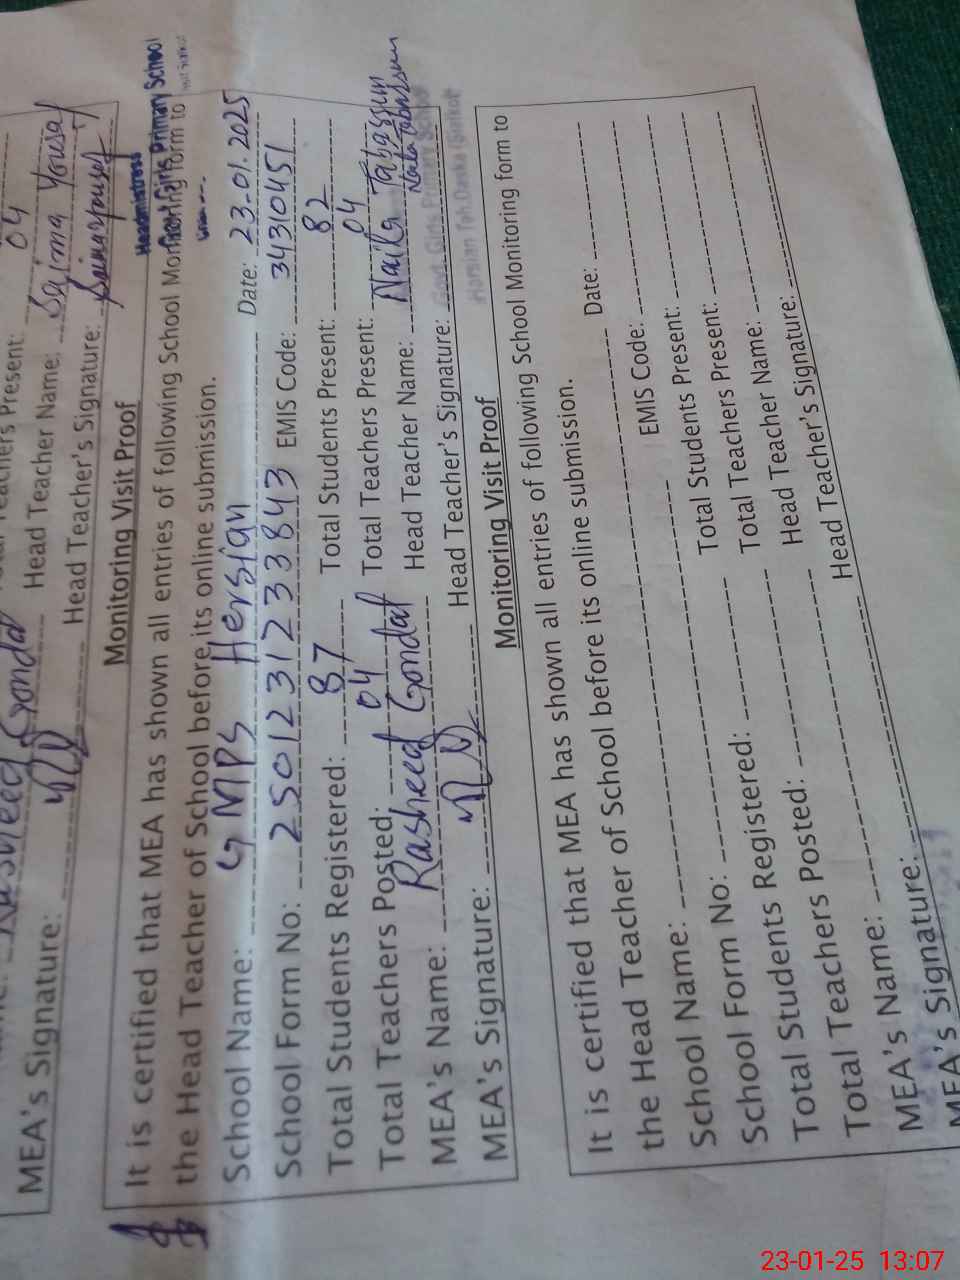 04
Teachers Present:
Head Teacher Name: Saima Yousaf
MEA's Signature: Head Teacher's Signature: Saima Yousaf
Headmistress
Govt. Girls Primary School
Monitoring Visit Proof
It is certified that MEA has shown all entries of following School Monitoring form to
the Head Teacher of School before its online submission.
School Name: GMPS Hersian Date: 23-01.2025
School Form No: 2501231233843 EMIS Code: 34310451
Total Students Registered: 87 Total Students Present: 82
Total Teachers Posted: 04 Total Teachers Present: 04
MEA's Name: Rasheed Gondal Head Teacher Name: Naila Tabassum
MEA's Signature: Head Teacher's Signature: Naila Tabassum
Govt. Girls Primary School
Harsian Teh. Daska (Sialkot
Monitoring Visit Proof
It is certified that MEA has shown all entries of following School Monitoring form to
the Head Teacher of School before its online submission.
School Name: Date:
School Form No: EMIS Code:
Total Students Registered: Total Students Present:
Total Teachers Posted: Total Teachers Present:
MEA's Name: Head Teacher Name:
MEA's Signature: Head Teacher's Signature:
MEA's Signature
23-01-25 13:07